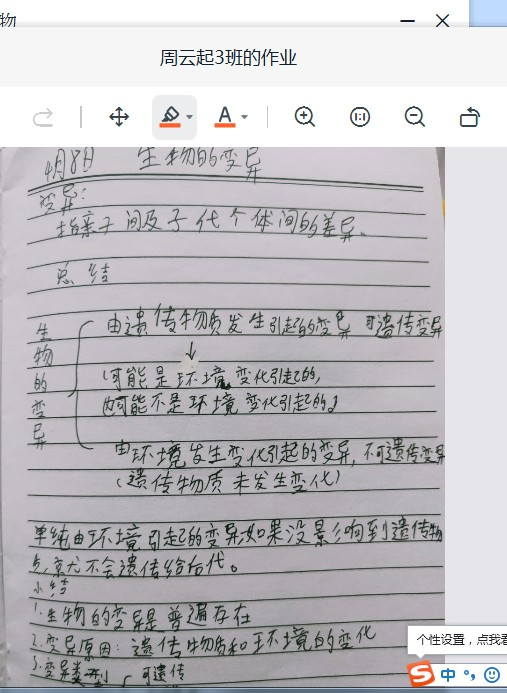 物
周云起3班的作业
A
1:1
4月8日 生物的变异
变异:
指亲子间及子代个体间的差异。
总结
生物的变异
由遗传物质发生引起的变异 可遗传变异
↓
(可能是环境变化引起的,
也可能不是环境变化引起的)
由环境发生变化引起的变异,不可遗传变异
(遗传物质未发生变化)
单纯由环境引起的变异如果没影响到遗传物
质,就不会遗传给后代。
小结
1.生物的变异是普遍存在
2.变异原因:遗传物质和环境的变化
3.变异类型 可遗传
个性设置,点我看
S中